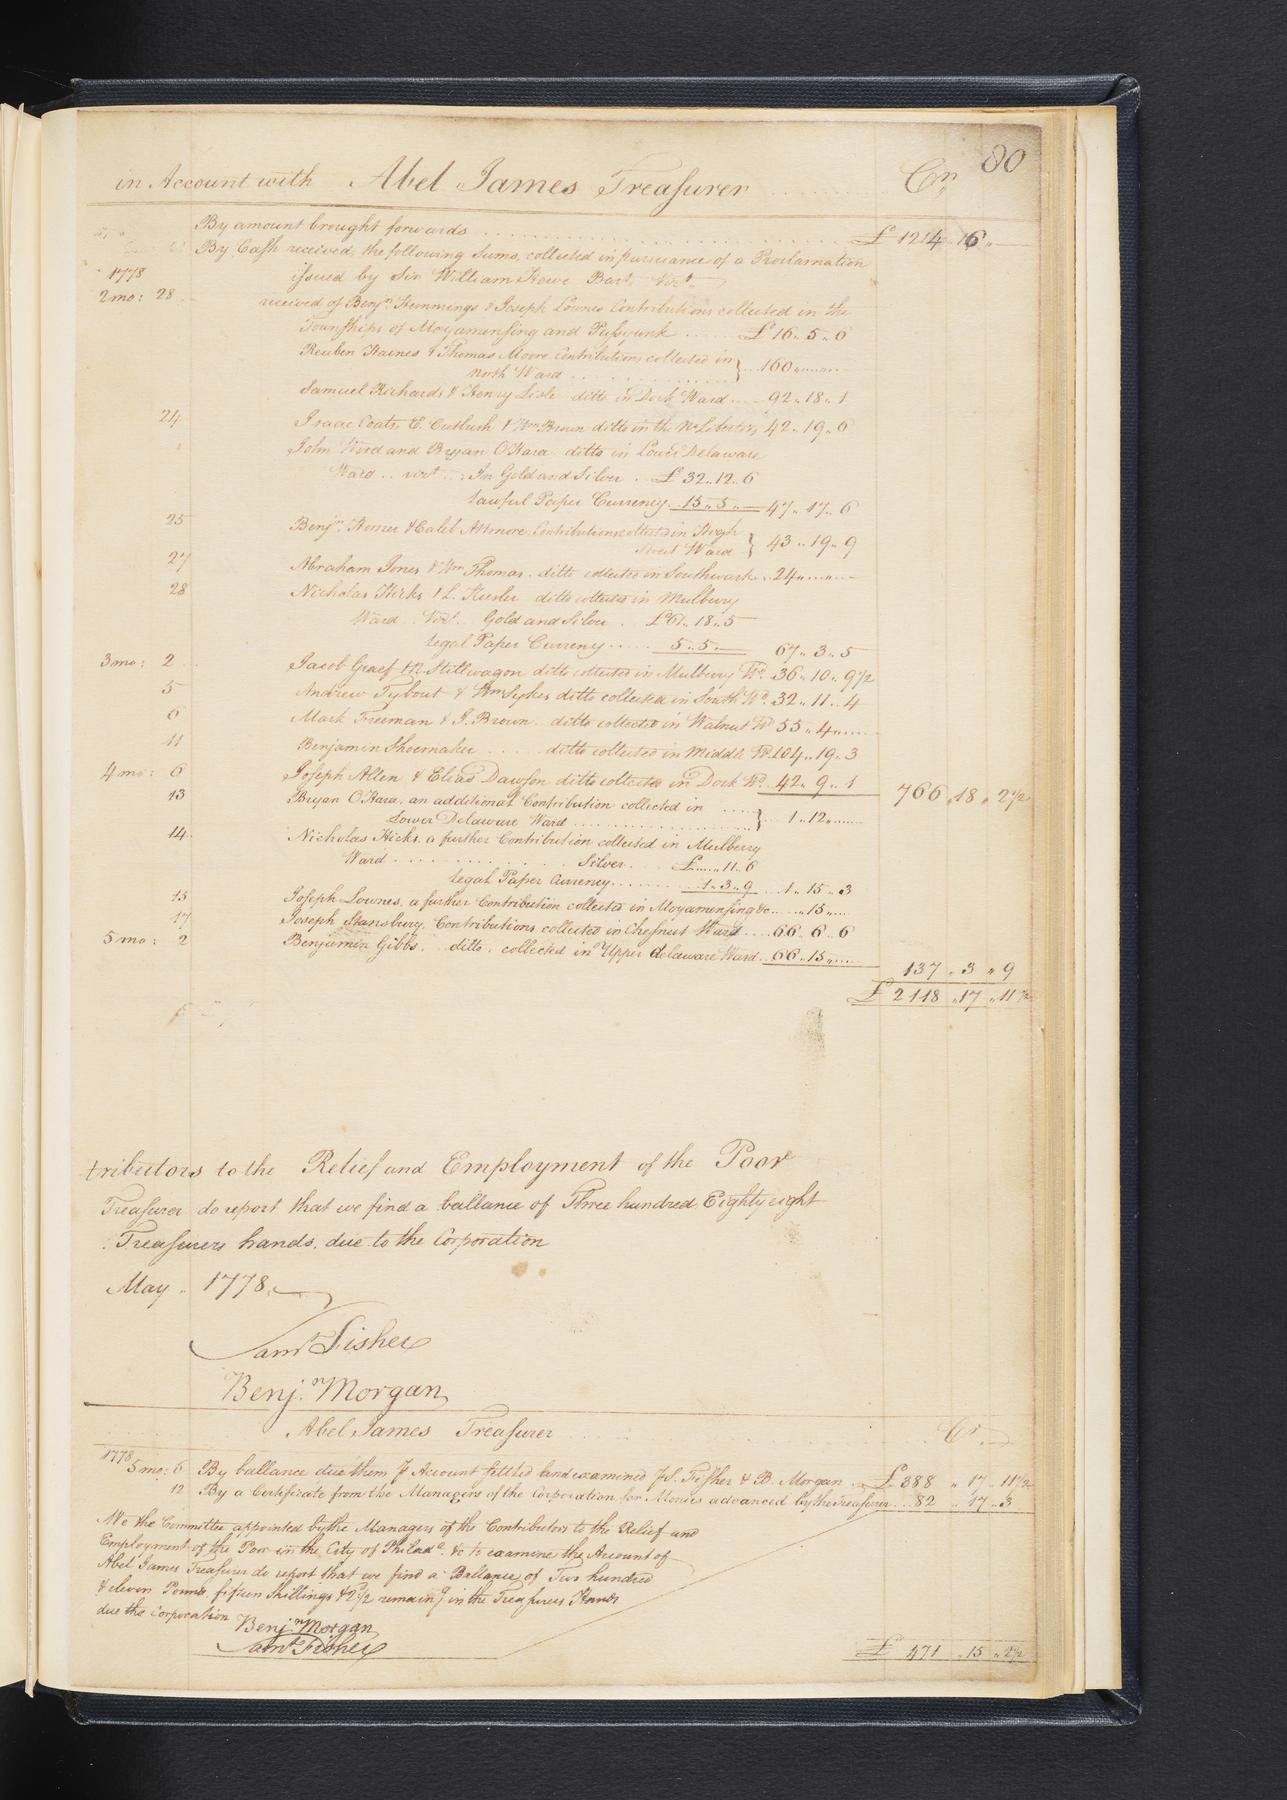 80
in Account with Abel James Treasurer . . . . . . Cr.
By amount brought forwards . . . . . . £ 1214 " 16 "
By Cash received, the following Sums, collected in pursuance of a Proclamation
1778 issued by Sir William Howe Bart. Vizt.
2 mo: 28 received of Benjn. Hemmings & Joseph Lownes Contributions collected in the
Townships of Moyamensing and Passyunk . . . . £ 16 " 5 " 6
Reuben Haines & Thomas Moore Contributions collected in
North Ward . . . . } 160 " . . . .
Samuel Richards & Henry Lisle ditto in Dock Ward . . . 92 " 18 " 1
24 Isaac Coats, E. Cutbush & Wm Brown ditto in the No. Liberties 42 " 19 " 6
John Wood and Bryan O'Hara ditto in Lower Delaware
Ward . . vizt . . In Gold and Silver . £ 32 " 12 " 6
lawful Paper Currency . 15 " 5 " — 47 " 17 " 6
25 Benjn. Horner & Caleb Attmore, Contributions collected in High
Street Ward } 43 " 19 " 9
27 Abraham Jones & Wm Thomas . ditto collected in Southwark . . 24 " . . . .
28 Nicholas Hicks & L. Kiesler ditto collected in Mulberry
Ward . Vizt. Gold and Silver . £ 61 " 18 " 5
legal Paper Currency . . . . 5 " 5 " — 67 " 3 " 5
3 mo: 2 Jacob Graef & P. Stillwagon ditto collected in Mulberry Wd. 36 " 10 " 9 1/2
5 Andrew Tybout & Wm Sykes ditto collected in South Wd. 32 " 11 " 4
6 Mark Freeman & J. Brown . ditto collected in Walnut Wd 55 " 4 " . . . .
11 Benjamin Shoemaker . . . . ditto collected in Middle Wd. 104 " 19 " 3
4 mo: 6 Joseph Allen & Elias Dawson ditto collected in Dock Wd. 42 " 9 " 1 766 " 18 " 2 1/2
13 Bryan O'Hara, an additional Contribution collected in . . . .
Lower Delaware Ward . . . . } 1 " 12 " . . . .
14 Nicholas Hicks, a further Contribution collected in Mulberry
Ward . . . . Silver . . . £ . . " 11 " 6
legal Paper Currency . . . . 1 " 3 " 9 . . 1 " 15 " 3
15 Joseph Lownes, a further Contribution collected in Moyamensing &c . . . " 15 " . . .
17 Joseph Stansbury, Contributions collected in Chesnut Ward . . . 66 " 6 " 6
5 mo: 2 Benjamin Gibbs . ditto . collected in Upper Delaware Ward . 66 " 15 " . . .
137 " 3 " 9
£ 2118 " 17 " 11 1/2
tributors to the Relief and Employment of the Poor
Treasurer do report that we find a ballance of Three hundred Eighty eight
Treasurers hands, due to the Corporation
May " 1778.
Saml Fisher
Benj.n Morgan
Abel James Treasurer . . . . Cr.
1778
5 mo: 6 By ballance due them ⅌ Account settled and examined ⅌ S. Fisher & B. Morgan . . £ 388 " 17 " 11 1/2
12 By a Certificate from the Managers of the Corporation for Monies advanced by the Treasurer . . 82 " 17 " 3
We the Committee appointed by the Managers of the Contributors to the Relief and
Employment of the Poor in the City of Philada. &c to examine the Account of
Abel James Treasurer do report that we find a Ballance of Two hundred
& eleven Pounds, fifteen Shillings & 2 1/2 remaing in the Treasurers Hands
due the Corporation
Benj.n Morgan
Saml Fisher
£ 471 " 15 " 2 1/2